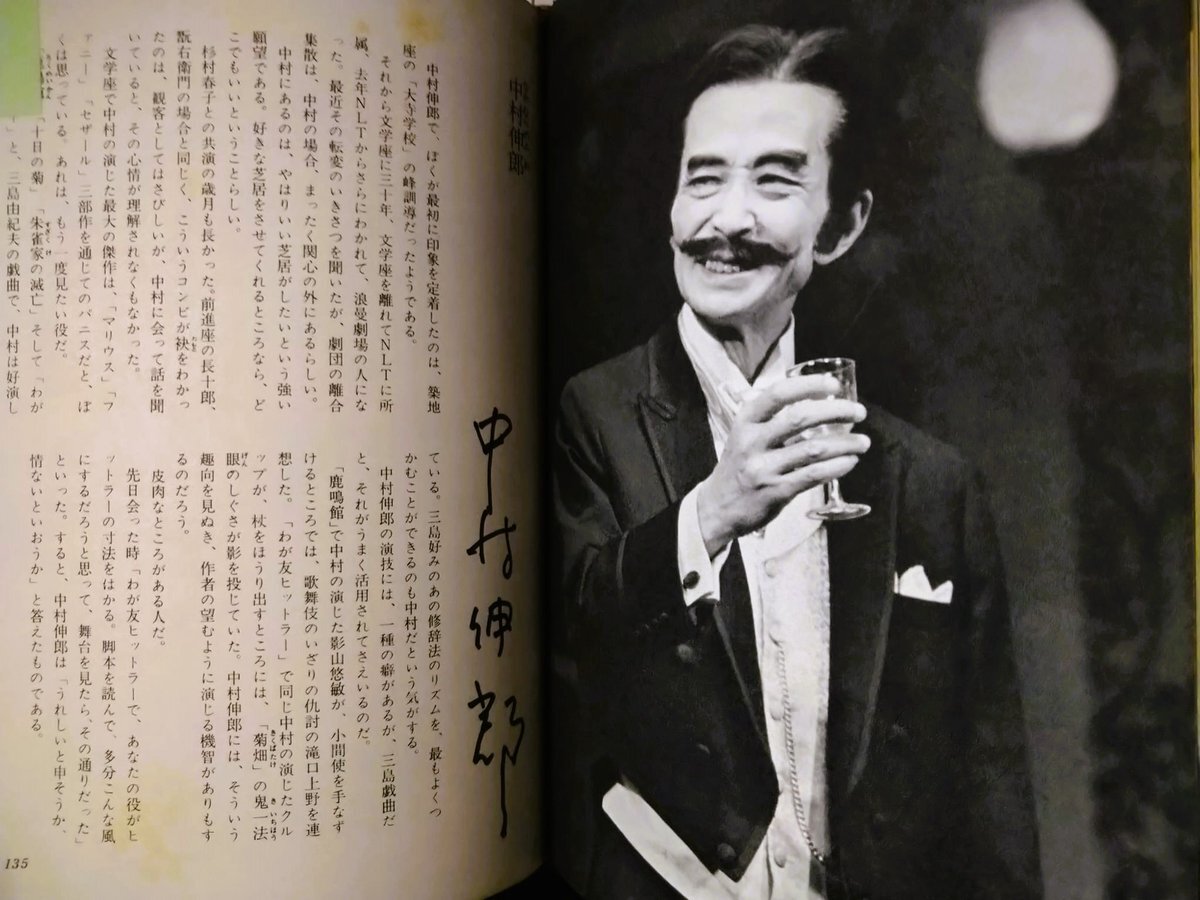 中村伸郎
中村伸郎で、ぼくが最初に印象を定着したのは、築地
座の「大寺学校」の峰訓導だったようである。
それから文学座に三十年、文学座を離れてNLTに所
属、去年NLTからさらにわかれて、浪曼劇場の人にな
った。最近その転変のいきさつを聞いたが、劇団の離合
集散は、中村の場合、まったく関心の外にあるらしい。
中村にあるのは、やはりいい芝居がしたいという強い
願望である。好きな芝居をさせてくれるところなら、ど
こでもいいということらしい。
杉村春子との共演の歳月も長かった。前進座の長十郎、
翫右衛門の場合と同じく、こういうコンビが袂をわかっ
たのは、観客としてはさびしいが、中村に会って話を聞
いていると、その心情が理解されなくもなかった。
文学座で中村の演じた最大の傑作は、「マリウス」「フ
ァニー」「セザール」三部作を通じてのパニスだと、ぼ
くは思っている。あれは、もう一度見たい役だ。
「十日の菊」「朱雀家の滅亡」そして「わが
」と、三島由紀夫の戯曲で、中村は好演し
ている。三島好みのあの修辞法のリズムを、最もよくつ
かむことができるのも中村だという気がする。
中村伸郎の演技には、一種の癖があるが、三島戯曲だ
と、それがうまく活用されてさえいるのだ。
「鹿鳴館」で中村の演じた影山悠敏が、小間使を手なず
けるところでは、歌舞伎のいざりの仇討の滝口上野を連
想した。「わが友ヒットラー」で同じ中村の演じたクル
ップが、杖をほうり出すところには、「菊畑」の鬼一法
眼のしぐさが影を投じていた。中村伸郎には、そういう
趣向を見ぬき、作者の望むように演じる機智がありもす
るのだろう。
皮肉なところがある人だ。
先日会った時「わが友ヒットラーで、あなたの役がヒ
ットラーの寸法をはかる。脚本を読んで、多分こんな風
にするだろうと思って、舞台を見たら、その通りだった」
といった。すると、中村伸郎は「うれしいと申そうか、
情ないといおうか」と答えたものである。
中村伸郎
135